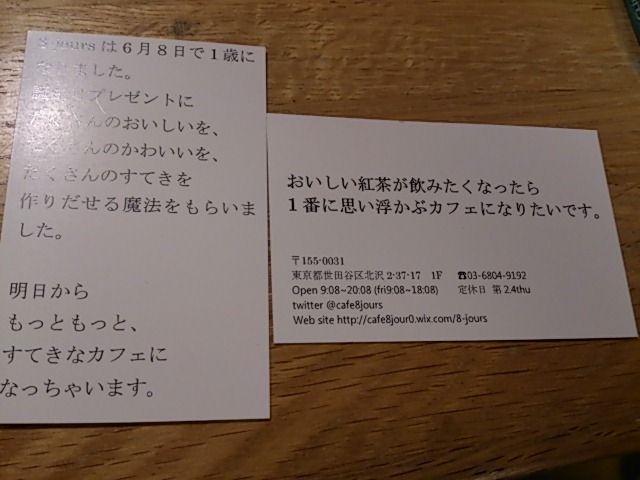 8 jours は6月8日で1歳に
なりました。
プレゼントに
さんのおいしいを、
さんのかわいいを、
たくさんのすてきを
作りだせる魔法をもらいま
した。
明日から
もっともっと、
すてきなカフェに
なっちゃいます。
おいしい紅茶が飲みたくなったら
1番に思い浮かぶカフェになりたいです。
〒155-0031
東京都世田谷区北沢2-37-17 1F ☎03-6804-9192
Open 9:08~20:08 (fri9:08~18:08) 定休日 第2.4thu
twitter @cafe8jours
Web site http://cafe8jour0.wix.com/8-jours